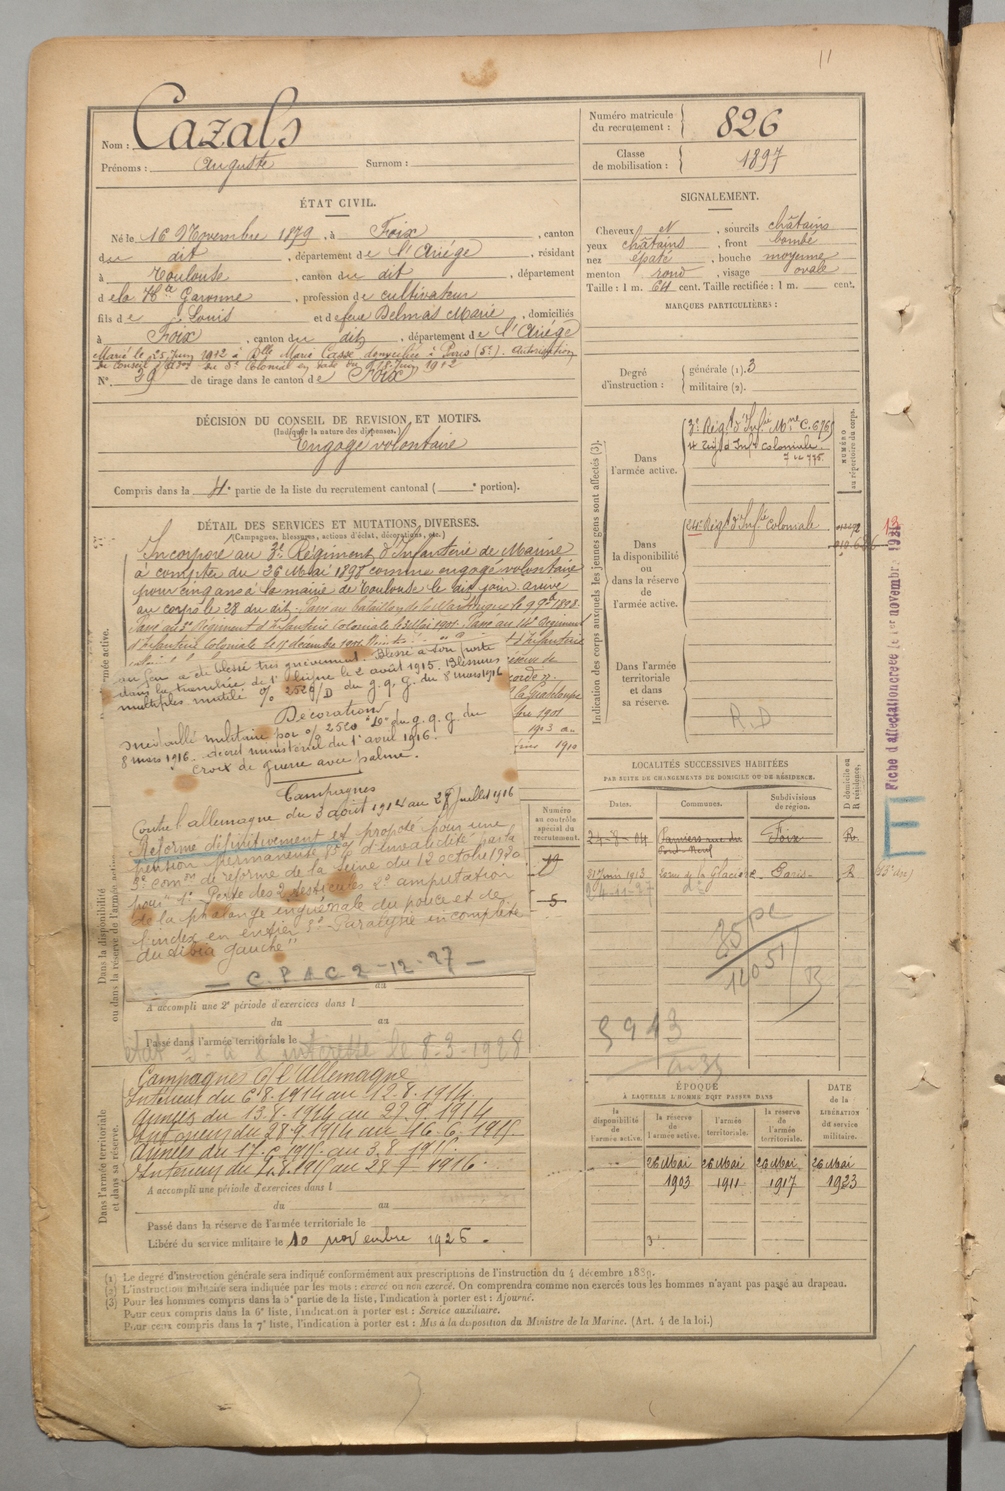 11
Nom : Cazals
Prénoms : Auguste Surnom :
ÉTAT CIVIL.
Né le 16 Novembre 1879, à Foix, canton
du dit, département de l'Ariège, résidant
à Toulouse, canton du dit, département
de la Hte Garonne, profession de cultivateur
fils de Louis et de feue Delmas Marie, domiciliés
à Foix, canton du dit, département de l'Ariège
Marié le 25 Juin 1912 à Dlle Marie Casse domiciliée à Paris (5e). Autorisation
du Conseil d'Adon du 5e Colonial en date du 18 Juin 1912
N°. 39 de tirage dans le canton de Foix
DÉCISION DU CONSEIL DE REVISION ET MOTIFS.
(Indiquer la nature des dispenses.)
Engagé volontaire
Compris dans la 4e partie de la liste du recrutement cantonal ( e portion).
DÉTAIL DES SERVICES ET MUTATIONS DIVERSES.
(Campagnes, blessures, actions d'éclat, décorations, etc.)
Incorporé au 3e Régiment d'Infanterie de Marine
à compter du 26 Mai 1898 comme engagé volontaire
pour cinq ans à la mairie de Toulouse le dit jour arrivé
au corps le 28 du dit. Passé au bataillon de la Martinique le
Passé au 5e Régiment d'Infanterie Coloniale le 2 Mai 1901. Passé au 4e Régiment
d'Infanterie Coloniale le décembre 1901
au feu a été blessé très grièvement. Blessé à son poste
dans la tranchée de 1e ligne le 2 août 1915. Blessures
multiples mutilé o/o 2520/D du g.q.g. du 8 mars 1916
Décoration
Médaille militaire par o/o 2520 "D" du g.q.g. du
8 mars 1916. décret ministériel du 1er avril 1916.
Croix de guerre avec palme.
Campagnes
Contre l'allemagne du 3 août 1914 au 28 juillet 1916
Réformé définitivement et proposé pour une
pension permanente d'invalidité par la
3e comon de réforme de la Seine du 12 octobre 1920
pour "1° Perte des 2 testicules 2° amputation
de la phalange unguéale du pouce et de
l'index en entier 3° Paralysie incomplète
du tibia gauche"
— C.P.A.C 2-12-27 —
la Guadeloupe
1901
1903
1910
A accompli une 2e période d'exercices dans l
du au
Passé dans l'armée territoriale le
intéressé le 8-3-1928
Campagnes c/ l'Allemagne
Intérieur du 6.8.1914 au 12.8.1914.
Armées du 13.8.1914 au 27.9.1914
Intérieur du 28.9.1914 au 16.6.1915.
Armées du 17.6.1915 au 3.8.1915.
Intérieur du 4.8.1915 au 28 7 1916.
A accompli une période d'exercices dans l
du au
Passé dans la réserve de l'armée territoriale le
Libéré du service militaire le 10 novembre 1926.
Dans la disponibilité
ou dans la réserve de l'armée active.
Dans l'armée territoriale
et dans sa réserve.
Numéro
au contrôle
spécial du
recrutement.
5
Numéro matricule
du recrutement : 826
Classe
de mobilisation : 1897
SIGNALEMENT.
Cheveux N, sourcils châtains
yeux châtains, front bombé
nez épaté, bouche moyenne
menton rond, visage ovale
Taille : 1 m. 64 cent. Taille rectifiée : 1 m. cent.
MARQUES PARTICULIÈRES :
Degré
d'instruction :
générale (1). 3
militaire (2).
Indication des corps auxquels les jeunes gens sont affectés (3).
NUMÉRO
au répertoire du corps.
Dans
l'armée active.
3e Régt d'Infie Mne C. 6769
4e Régt d'Infie Coloniale.
Dans
la disponibilité
ou
dans la réserve
de
l'armée active.
24e Régt d'Infie Coloniale
13
Dans l'armée
territoriale
et dans
sa réserve.
R.D
Fiche d'affectation créée le 1er novembre
E
LOCALITÉS SUCCESSIVES HABITÉES
PAR SUITE DE CHANGEMENTS DE DOMICILE OU DE RÉSIDENCE.
Dates. Communes. Subdivisions de région. D domicile ou R résidence.
24-8-04 Pamiers rue du Pont-Neuf Foix R.
31 Mai 1913 de la Glacière Paris R (5e dre)
24-11-27 de
85 pe
14051
5943
ÉPOQUE
À LAQUELLE L'HOMME DOIT PASSER DANS
DATE
de la
LIBÉRATION
du service
militaire.
la disponibilité de l'armée active.
la réserve de l'armée active.
l'armée territoriale.
la réserve de l'armée territoriale.
26 Mai 26 Mai 26 Mai 26 Mai
1903 1911 1917 1923
(1) Le degré d'instruction générale sera indiqué conformément aux prescriptions de l'instruction du 4 décembre 1889.
(2) L'instruction militaire sera indiquée par les mots : exercé ou non exercé. On comprendra comme non exercés tous les hommes n'ayant pas passé au drapeau.
(3) Pour les hommes compris dans la 5e partie de la liste, l'indication à porter est : Ajourné.
Pour ceux compris dans la 6e liste, l'indication à porter est : Service auxiliaire.
Pour ceux compris dans la 7e liste, l'indication à porter est : Mis à la disposition du Ministre de la Marine. (Art. 4 de la loi.)